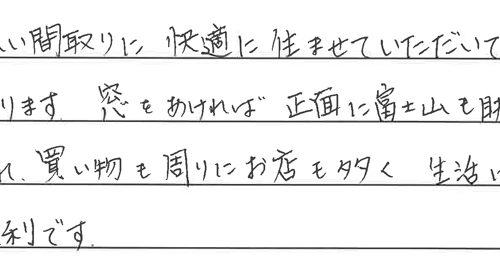 い間取りに 快適に住ませていただいて
ります。窓をあければ 正面に富士山も
れ、買い物も周りにお店も多く 生活に
利です。